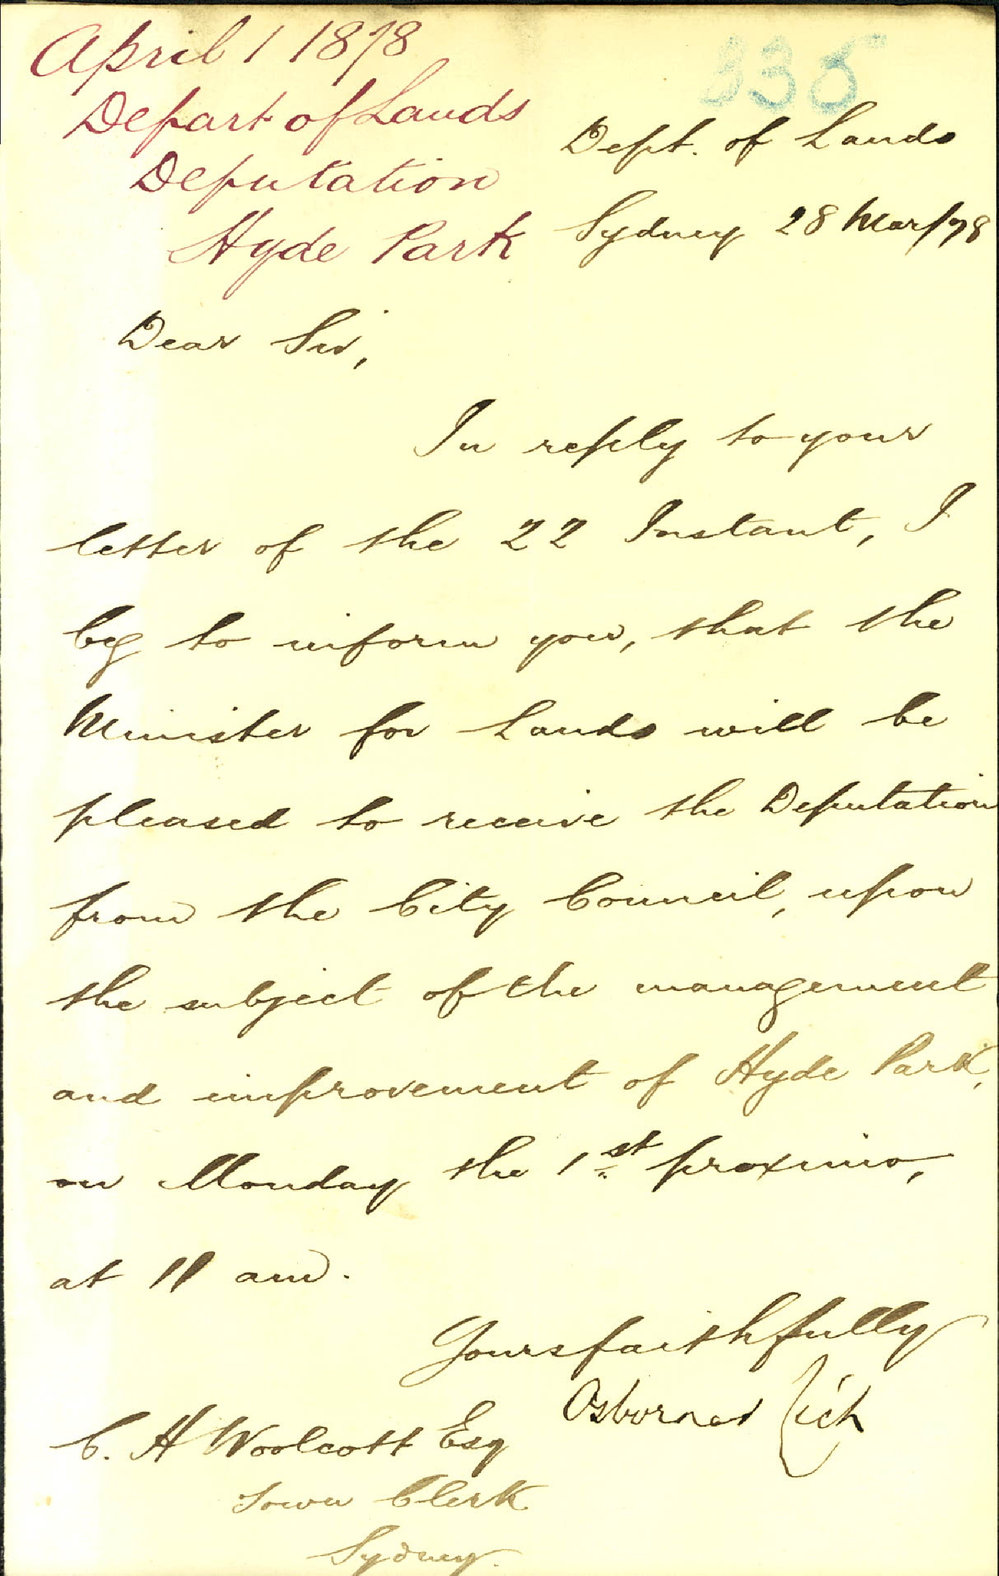 April 1 1878
Depart of Lands
Deputation
Hyde Park
335
Dept. of Lands
Sydney 28 Mar/78
Dear Sir,
In reply to your
letter of the 22 Instant, I
beg to inform you, that the
Minister for Lands will be
pleased to receive the Deputation
from the City Council, upon
the subject of the management
and improvement of Hyde Park,
on Monday the 1st proximo,
at 11 am.
Yours faithfully
Osborne Rich
C. H Woolcott Esq
Town Clerk
Sydney.